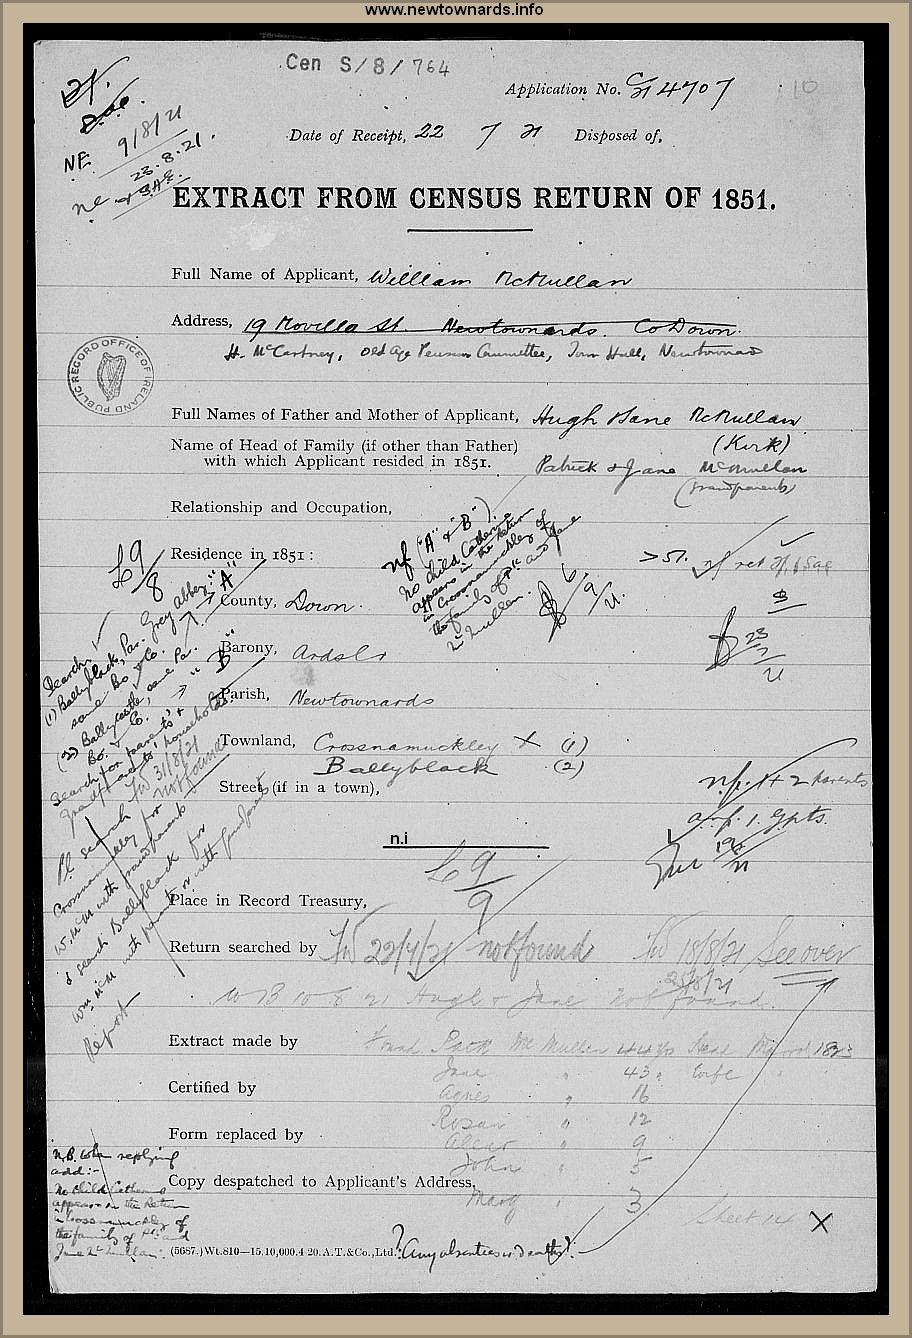 www.newtownards.info
Cen S/8/764
Application No. C/21 4707
Date of Receipt, 22 7 21 Disposed of,
NE 9/8/21
23.8.21
EXTRACT FROM CENSUS RETURN OF 1851.
Full Name of Applicant, William McMullan
Address, 19 Movilla St. Newtownards. Co Down.
H. McCartney, Old Age Pension Committee, Town Hall, Newtownards
PUBLIC RECORD OFFICE OF IRELAND
Full Names of Father and Mother of Applicant, Hugh & Jane McMullan
(Kirk)
Name of Head of Family (if other than Father)
with which Applicant resided in 1851.
Patrick & Jane McMullan
(Grandparents)
Relationship and Occupation,
nf ("A" & "B").
No child Catherine
appears in the Return
in Crossnamuckley of
the family of Pk. and Jane
McMullan.
6/9/21.
Residence in 1851:
> 51.
£9/8
County, Down.
23/7/21
Barony, Ards Lr
Parish, Newtownards
Townland, Crossnamuckley X (1)
Ballyblack (2)
Street (if in a town),
Search
(1) Ballyblack, Par. Grey Abbey, "A"
same Bo & Co.
(2) Ballycastle, same Par. "B"
Bo. & Co.
Search for parents' &
grandparents' households.
FW 31/8/21
not found
Pl. search
Crossnamuckley for
W. McM with grandparents
& search Ballyblack for
Wm McM with parents or with grandparents
Report
n.f. 1 + 2 Parents
a.f. 1. G.pts.
n.i
£9/9
Place in Record Treasury,
Return searched by FW 22/7/21 not found FW 18/8/21 See over
25/8/21
WB 10 8 21 Hugh & Jane not found.
Extract made by Found Patk McMullen 44 yrs Head Married 1823
Jane " 43 " Wife "
Certified by
Agnes " 16
Rosan " 12
Form replaced by
" 9
John " 5
Copy despatched to Applicant's Address,
Mary " 3
Sheet 14 X
N.B. When replying
add:-
No child Catherine
appears in the Return
in Crossnamuckley of
the family of Pk. and
Jane McMullan.
(5687.) Wt.810—15.10,000.4-20. A.T.&Co., Ltd.
? (Any absentees or deaths)?